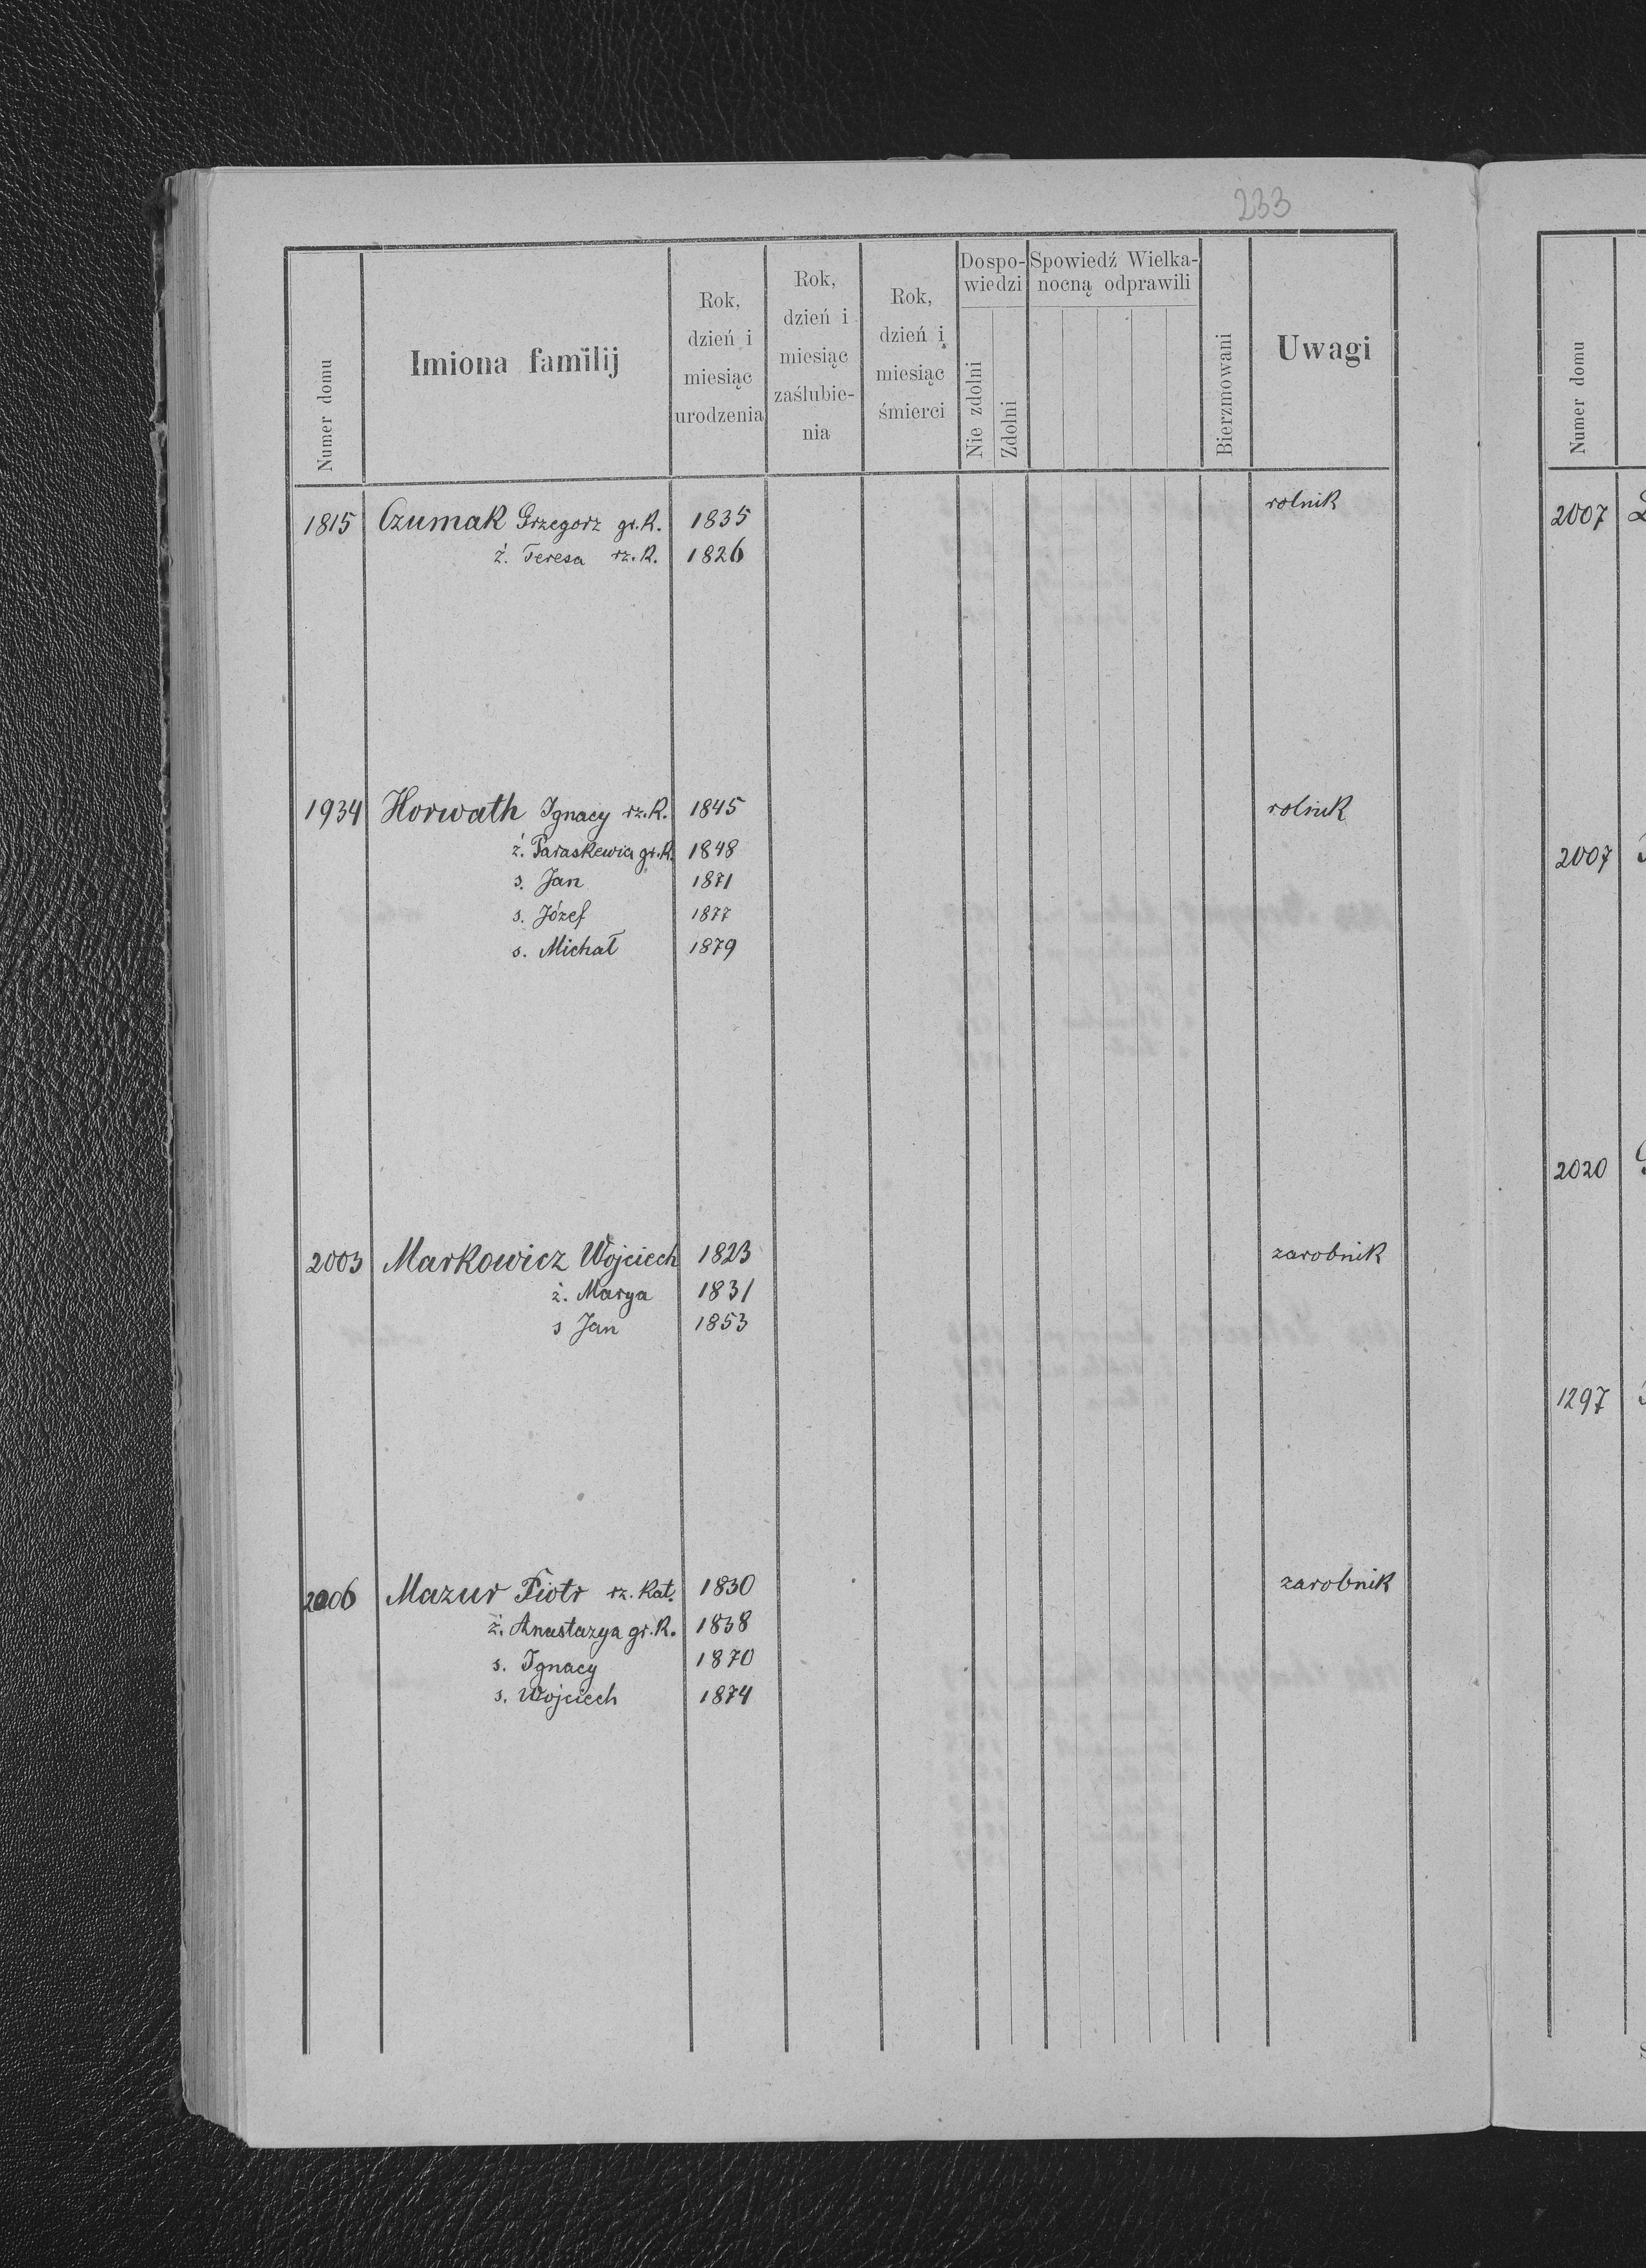 233
Numer domu
Imiona familij
Rok, dzień i miesiąc urodzenia
Rok, dzień i miesiąc zaślubie-nia
Rok, dzień i miesiąc śmierci
Dospo-wiedzi
Nie zdolni
Zdolni
Spowiedź Wielka-nocną odprawili
Bierzmowani
Uwagi
Numer domu
1815 Czumak Grzegorz gr.k. 1835 rolnik
ż. Teresa rz.k. 1826
1934 Horwath Ignacy rz.k. 1845 rolnik
ż. Paraskewia gr.k. 1848
s. Jan 1871
s. Józef 1877
s. Michał 1879
2003 Markowicz Wojciech 1823 zarobnik
ż. Marya 1831
s Jan 1853
2006 Mazur Piotr rz. kat. 1830 zarobnik
ż. Anastazya gr.k. 1838
s. Ignacy 1870
s. Wojciech 1874
2007
2007
2020
1297